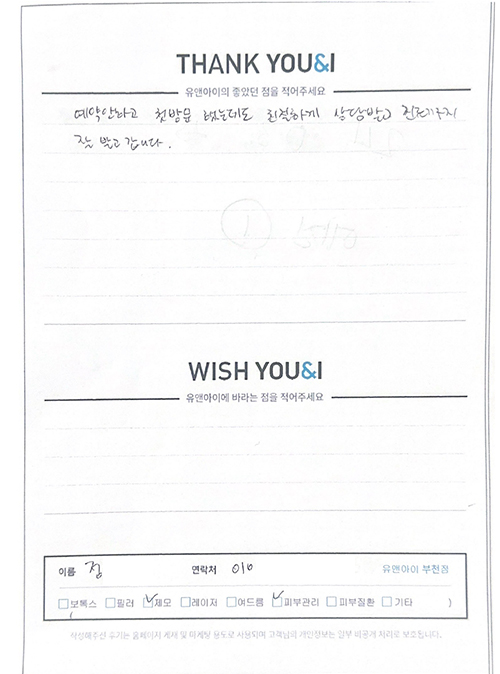 THANK YOU&I
유앤아이의 좋았던 점을 적어주세요
예약안하고 첫방문 했는데도 친절하게 상담받고 진료까지
잘 받고 갑니다.
WISH YOU&I
유앤아이에 바라는 점을 적어주세요
이름 정 연락처 010 유앤아이 부천점
보톡스 필러 제모 레이저 여드름 피부관리 피부질환 기타 )
작성해주신 후기는 홈페이지 게재 및 마케팅 용도로 사용되며 고객님의 개인정보는 일부 비공개 처리로 보호됩니다.